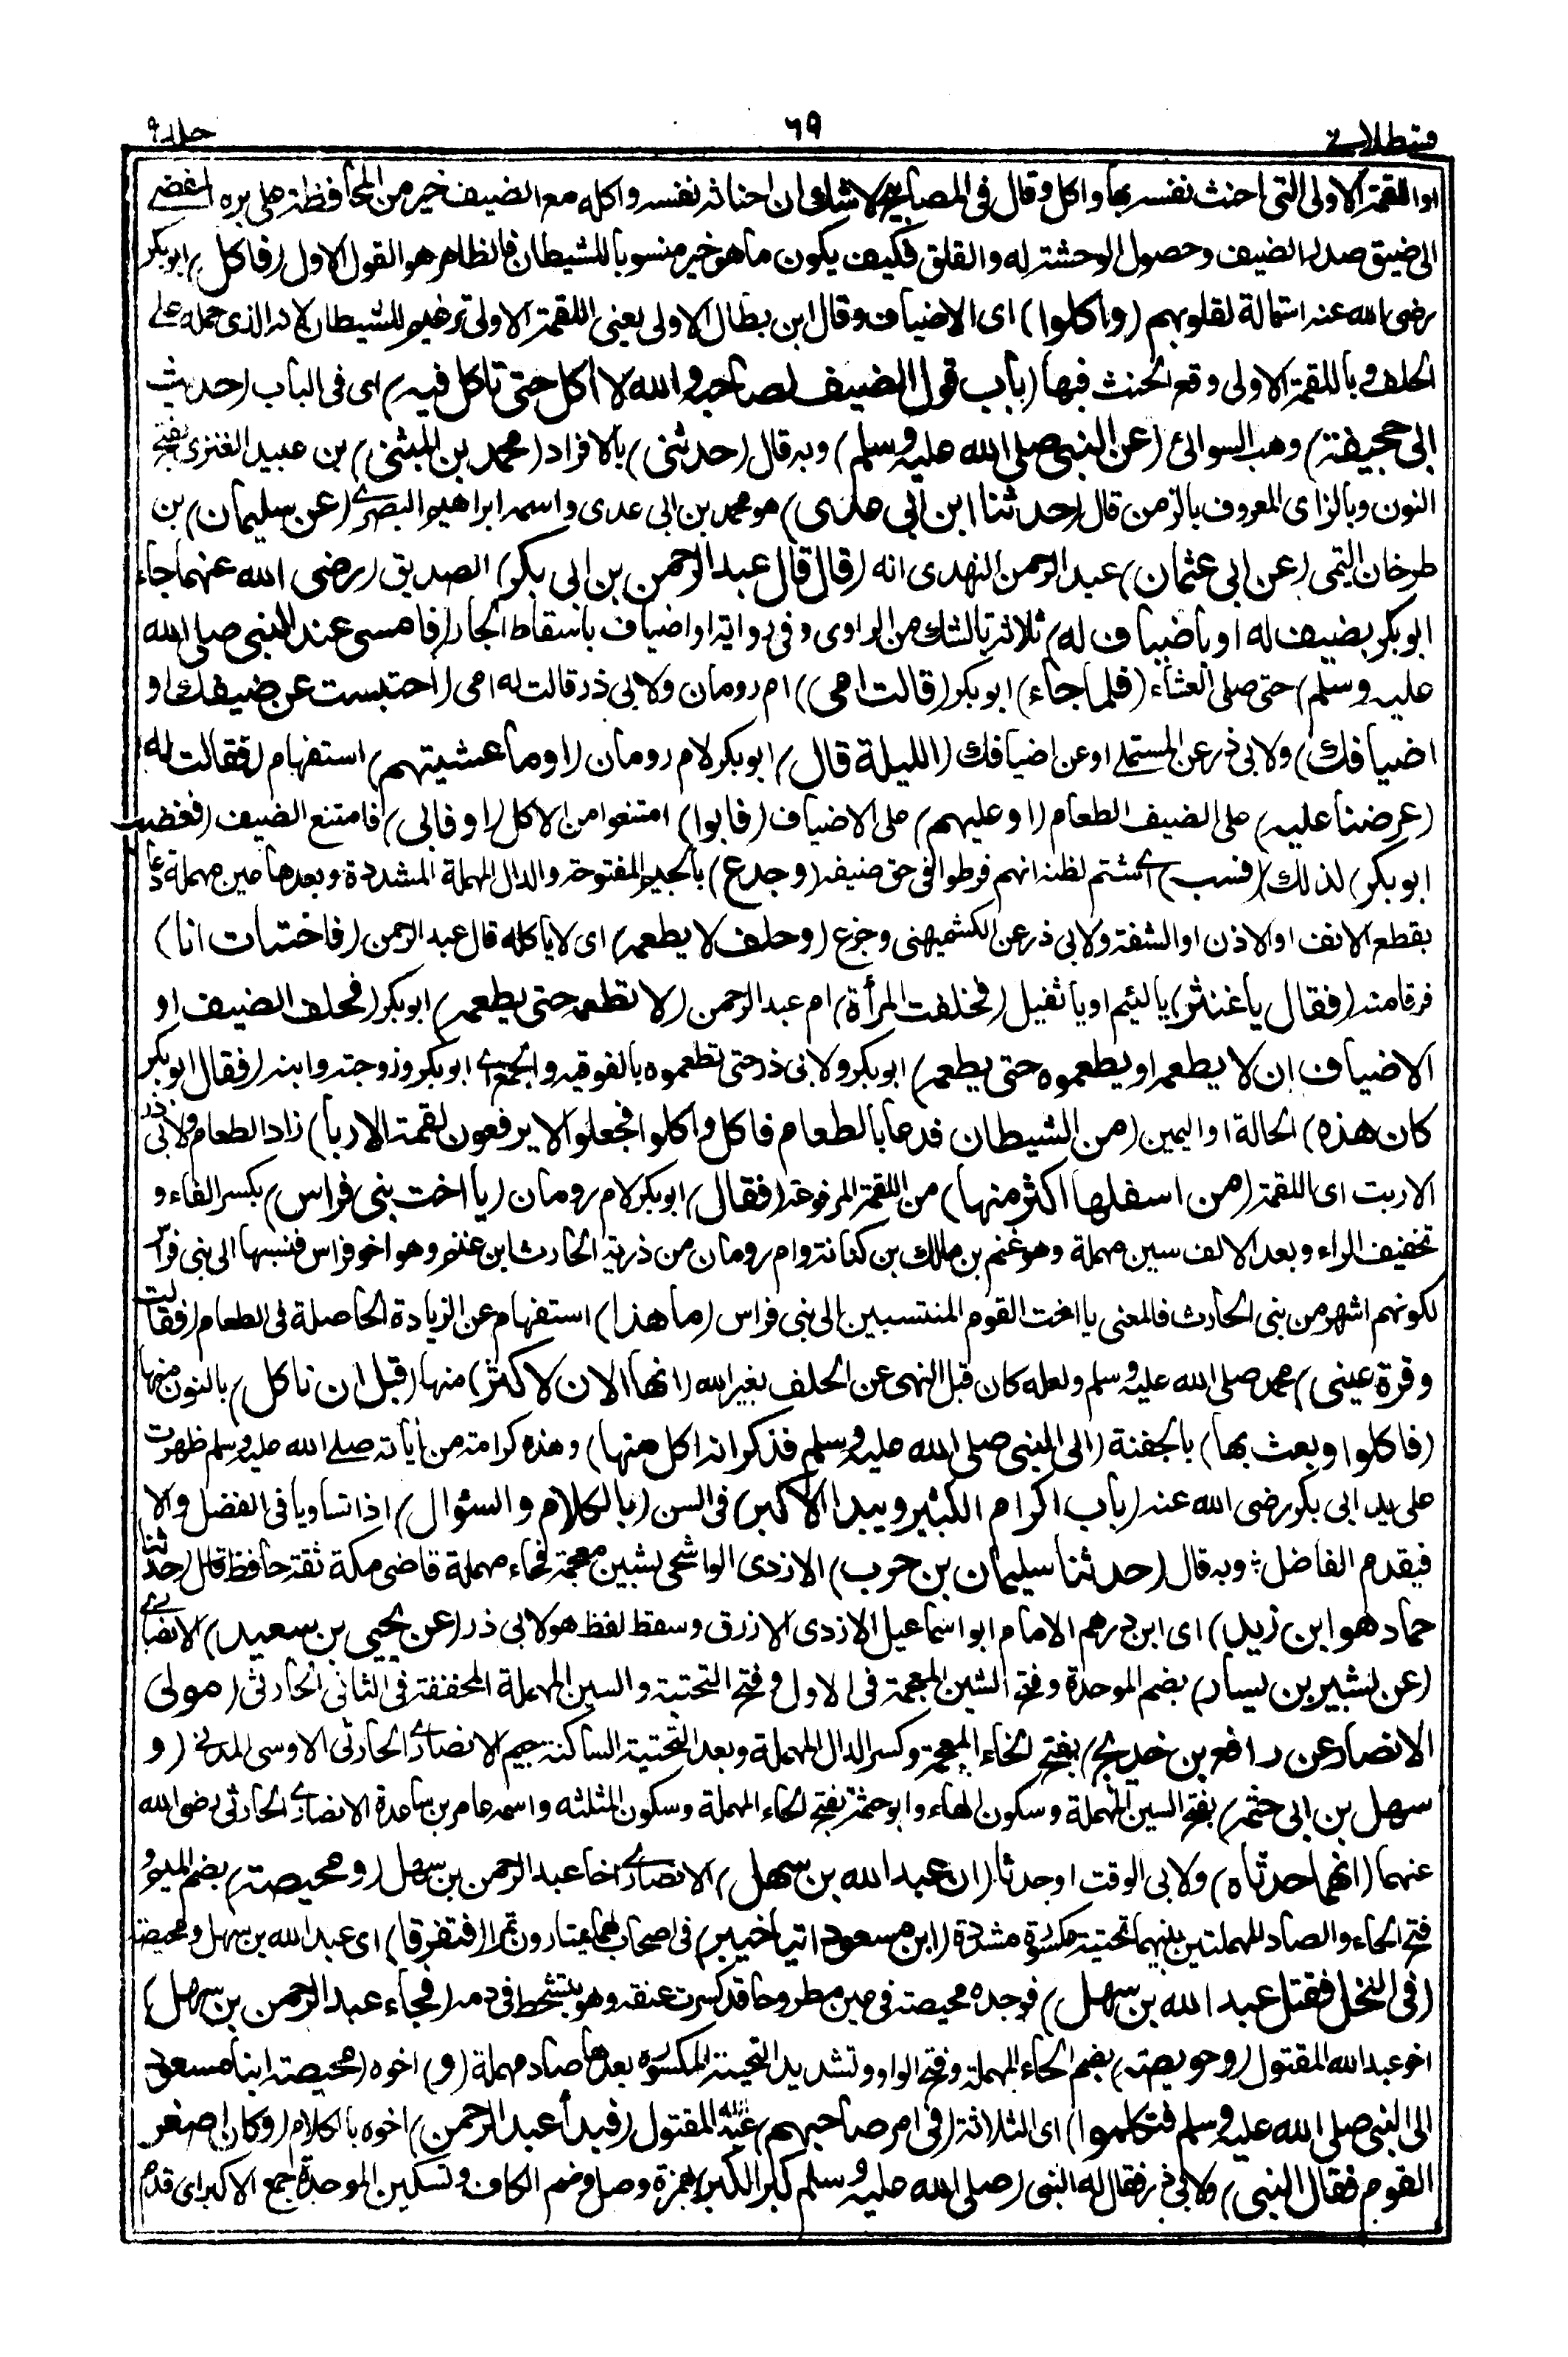 قسطلانی ٦٩ جلد ٩
او اللقمة الاولى التى احنث نفسه بها واكل وقال فى المصابيح لا شك ان احناثه نفسه واكله مع الضيف خير من المحافظة على بره المفضى
الى ضيق صدر الضيف وحصول الوحشة له والقلق فكيف يكون ما هو خير منسوبا للشيطان فالظاهر هو القول الاول (فاكل) ابوبكر
رضى الله عنه استمالة لقلوبهم (واكلوا) اى الاضياف وقال ابن بطال الاولى يعنى اللقمة الاولى ترغيم للشيطان لانه الذى حمله على
الحلف وباللقمة الاولى وقع الحنث فيها (باب قول الضيف لصاحبه والله لا آكل حتى تاكل فيه) اى فى الباب (حديث
ابى جحيفة) وهب السوائى (عن النبى صلى الله عليه وسلم) وبه قال (حدثنى) بالافراد (محمد بن المثنى) بن عبيد العنزى بفتح
النون وبالزاى المعروف بالزمن قال (حدثنا ابن ابى عدى) هو محمد بن ابى عدى واسمه ابراهيم البصرى (عن سليمان) بن
طرخان التيمى (عن ابى عثمان) عبد الرحمن النهدى انه (قال قال عبد الرحمن بن ابى بكر) الصديق (رضى الله عنهما جاء
ابوبكر بضيف له او باضياف له) ثلاثة بالشك من الراوى وفى رواية او اضياف باسقاط الجار (فامسى عند النبى صلى الله
عليه وسلم) حتى صلى العشاء (فلما جاء) ابوبكر (قالت امى) ام رومان ولابى ذر قالت له امى (احتبست عن ضيفك او
اضيافك) ولابى ذر عن المستملى او عن اضيافك (الليلة قال) ابوبكر لام رومان (او ما عشيتهم) استفهام (فقالت له
(عرضنا عليه) على الضيف الطعام (او عليهم) على الاضياف (فابوا) امتنعوا من الاكل (او فابى) فامتنع الضيف (فغضب
ابوبكر) لذلك (فسب) اى شتم لظنه انهم فرطوا فى حق ضيفه (وجدع) بالجيم المفتوحة والدال المهملة المشددة وبعدها عين مهملة دعا
بقطع الانف او الاذن او الشفة ولابى ذر عن الكشميهنى وجزع (وحلف لا يطعمه) اى لا ياكله قال عبد الرحمن (فاختبات انا)
فرقا منه (فقال يا غنثر) يا لئيم او يا ثقيل (فحلفت المرأة) ام عبد الرحمن (لا تطعمه حتى يطعمه) ابوبكر (فحلف الضيف او
الاضياف ان لا يطعمه او يطعموه حتى يطعمه) ابوبكر ولابى ذر حتى تطعموه بالفوقية والجمع اى ابوبكر وزوجته وابنه (فقال ابوبكر
كان هذه) الحالة او اليمين (من الشيطان فدعا بالطعام فاكل واكلوا فجعلوا لا يرفعون لقمة الا ربا) زاد الطعام ولابى ذر
الا ربت اى اللقمة (من اسفلها اكثر منها) من اللقمة المرفوعة (فقال) ابوبكر لام رومان (يا اخت بنى فراس) بكسر الفاء و
تخفيف الراء وبعد الالف سين مهملة وهو غنم بن مالك بن كنانة وام رومان من ذرية الحارث ابن غنم وهو اخو فراس فنسبها الى بنى فراس
لكونهم اشهر من بنى الحارث فالمعنى يا اخت القوم المنتسبين الى بنى فراس (ما هذا) استفهام عن الزيادة الحاصلة فى الطعام (فقالت
وقرة عينى) محمد صلى الله عليه وسلم ولعله كان قبل النهى عن الحلف بغير الله (انها الان لاكثر) منها (قبل ان ناكل) بالنون منها
(فاكلوا وبعث بها) بالجفنة (الى النبى صلى الله عليه وسلم فذكر انه اكل منها) وهذه كرامة من أياته صلى الله عليه وسلم ظهرت
على يد ابى بكر رضى الله عنه (باب اكرام الكبير ويبدا الاكبر) فى السن (بالكلام والسؤال) اذا تساويا فى الفضل والا
فيقدم الفاضل : وبه قال (حدثنا سليمان بن حرب) الازدى الواشحى بشين معجمة فحاء مهملة قاضى مكة ثقة حافظ قال (حدثنا
حماد هو ابن زيد) اى ابن درهم الامام ابو اسماعيل الازدى الازرق وسقط لفظ هو لابى ذر (عن يحيى بن سعيد) الانصارى
(عن بشير بن يسار) بضم الموحدة وفتح الشين المعجمة فى الاول وفتح التحتية والسين المهملة المخففة فى الثانى الحارثى (مولى
الانصار عن رافع بن خديج) بفتح الخاء المعجمة وكسر الدال المهملة وبعد التحتية الساكنة جيم الانصارى الحارثى الاوسى المدنى (و
سهل بن ابى حثمة) بفتح السين المهملة وسكون الهاء وابو حثمة بفتح الحاء المهملة وسكون المثلثه واسمه عامر بن ساعدة الانصارى الحارثى رضى الله
عنهما (انهما حدثاه) ولابى الوقت او حدثا (ان عبد الله بن سهل) الانصارى اخا عبد الرحمن بن سهل (ومحيصة) بضم الميم و
فتح الحاء والصاد المهملتين بينهما تحتية مكسورة مشددة (ابن مسعود اتيا خيبر) فى اصحاب لهما يمتارون تمرا (فتفرقا) اى عبد الله بن سهل ومحيصة
(فى النخل فقتل عبد الله بن سهل) فوجده محيصة فى عين مطروحا قد كسرت عنقه وهو يتشحط فى دمه (فجاء عبد الرحمن بن سهل)
اخو عبد الله المقتول (وحويصة) بضم الحاء المهملة وفتح الواو وتشديد التحتية المكسورة بعدها صاد مهملة (و) اخوه (محيصة ابنا مسعود
الى النبى صلى الله عليه وسلم فتكلموا) اى الثلاثة (فى امر صاحبهم) عبد الله المقتول (فبدأ عبد الرحمن) اخوه بالكلام (وكان اصغر
القوم فقال النبى) ولابى ذر فقال له النبى (صلى الله عليه وسلم كبر الكبر) بهمزة وصل وضم الكاف وتسكين الموحدة جمع الاكبر اى قدم